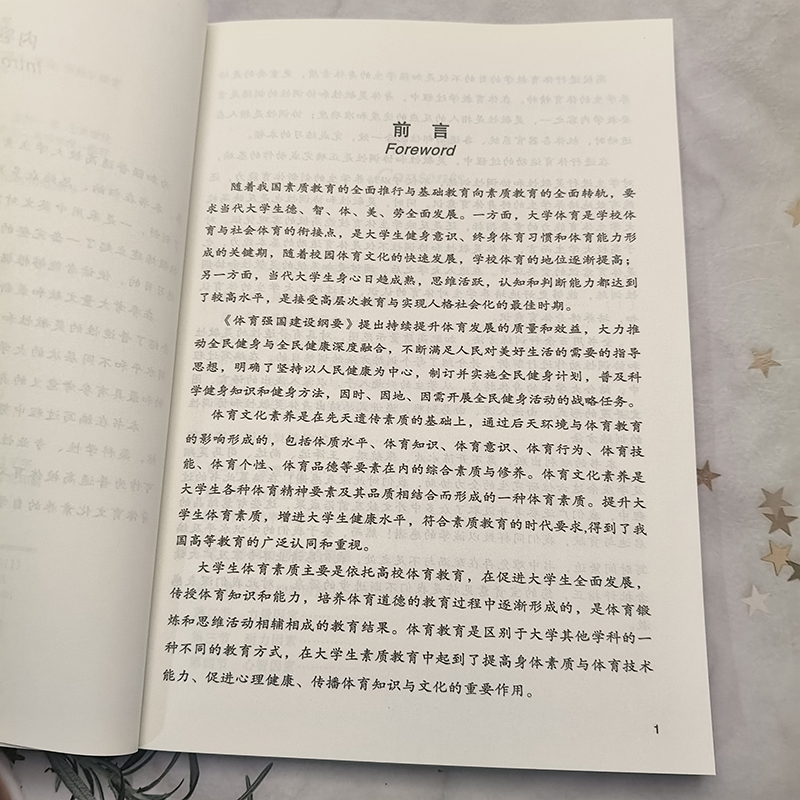 前言
Foreword
随着我国素质教育的全面推行与基础教育向素质教育的全面转轨，要
求当代大学生德、智、体、美、劳全面发展。一方面，大学体育是学校体
育与社会体育的衔接点，是大学生健身意识、终身体育习惯和体育能力形
成的关键期，随着校园体育文化的快速发展，学校体育的地位逐渐提高；
另一方面，当代大学生身心日趋成熟，思维活跃，认知和判断能力都达到
了较高水平，是接受高层次教育与实现人格社会化的最佳时期。
《体育强国建设纲要》提出持续提升体育发展的质量和效益，大力推
动全民健身与全民健康深度融合，不断满足人民对美好生活的需要的指导
思想，明确了坚持以人民健康为中心，制订并实施全民健身计划，普及科
学健身知识和健身方法，因时、因地、因需开展全民健身活动的战略任务。
体育文化素养是在先天遗传素质的基础上，通过后天环境与体育教育
的影响形成的，包括体质水平、体育知识、体育意识、体育行为、体育技
能、体育个性、体育品德等要素在内的综合素质与修养。体育文化素养是
大学生各种体育精神要素及其品质相结合而形成的一种体育素质。提升大
学生体育素质，增进大学生健康水平，符合素质教育的时代要求，得到了我
国高等教育的广泛认同和重视。
大学生体育素质主要是依托高校体育教育，在促进大学生全面发展，
传授体育知识和能力，培养体育道德的教育过程中逐渐形成的，是体育锻
炼和思维活动相辅相成的教育结果。体育教育是区别于大学其他学科的一
种不同的教育方式，在大学生素质教育中起到了提高身体素质与体育技术
能力、促进心理健康、传播体育知识与文化的重要作用。
1